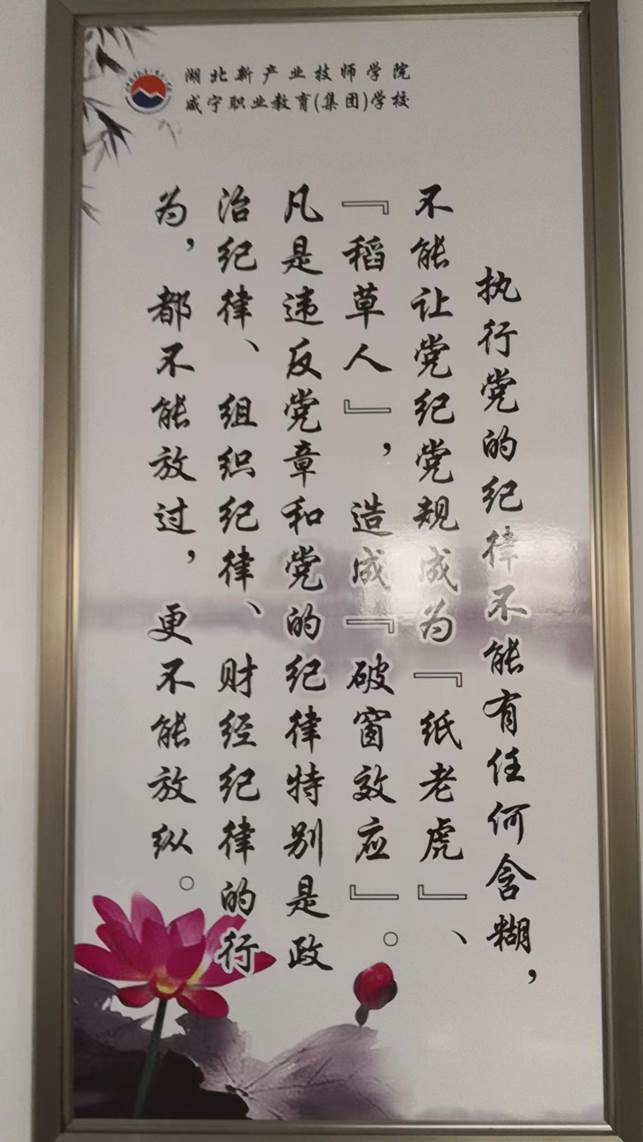 湖北新产业技师学院
咸宁职业教育(集团)学校
执行党的纪律不能有任何含糊，
不能让党纪党规成为『纸老虎』、
『稻草人』，造成『破窗效应』。
凡是违反党章和党的纪律特别是政
治纪律、组织纪律、财经纪律的行
为，都不能放过，更不能放纵。